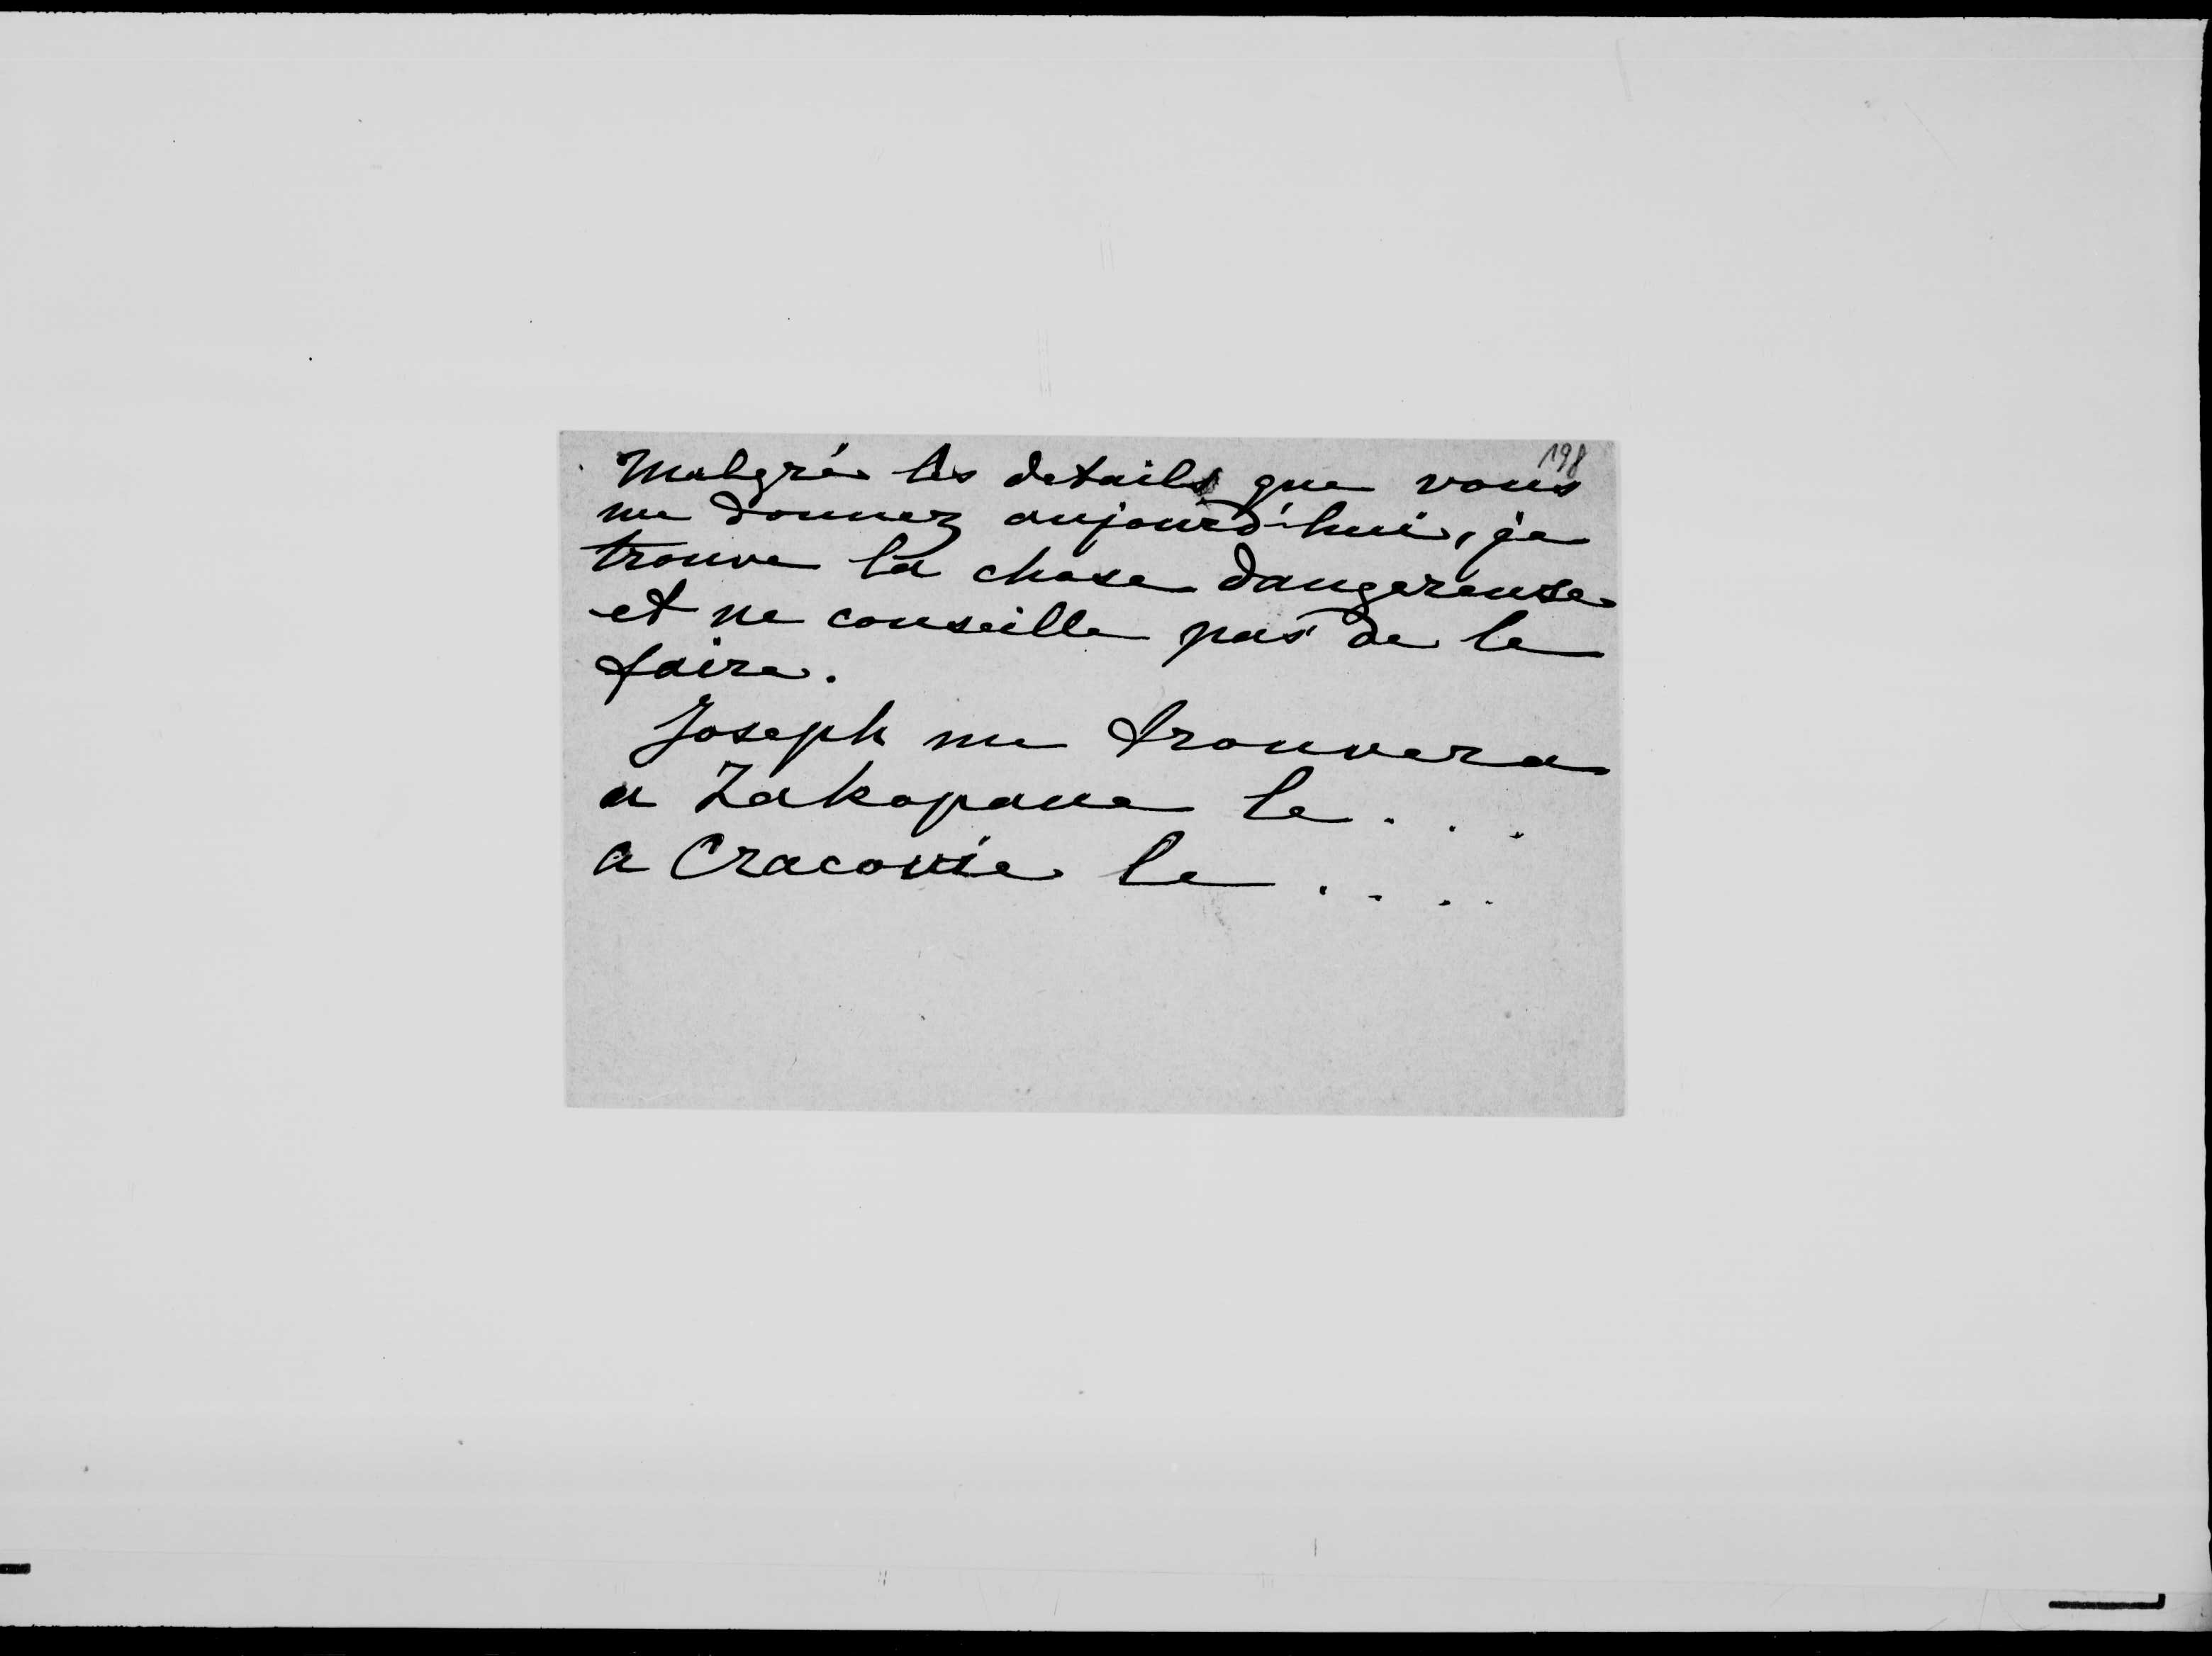 198
Malgré les details que vous
me donnez aujourd'hui, je
trouve la chose dangereuse
et ne conseille pas de le
faire.
Joseph me trouvera
a Zakopane le . . .
a Cracovie le . . . .